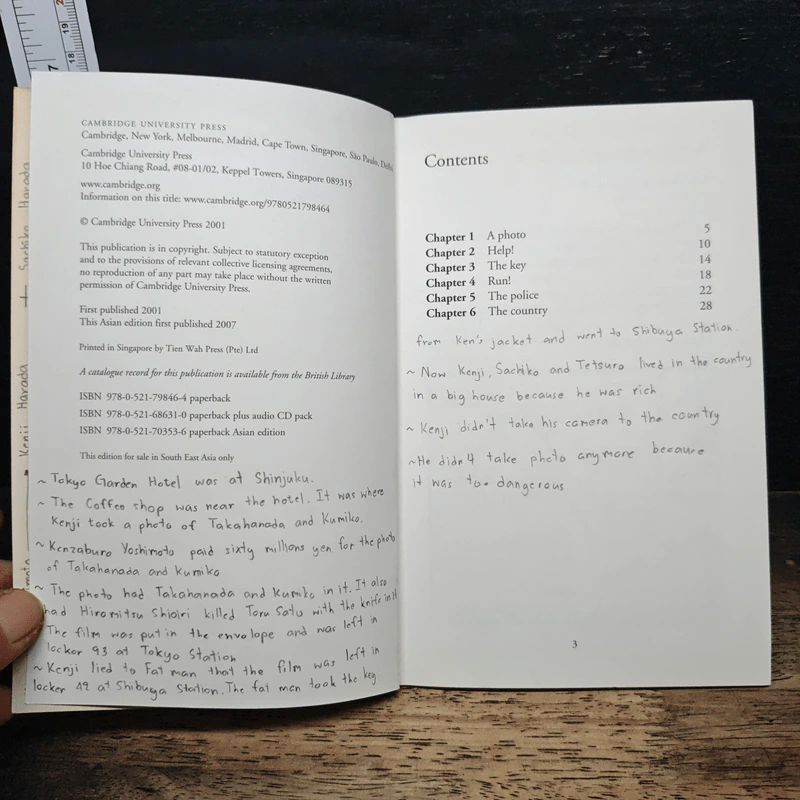 CAMBRIDGE UNIVERSITY PRESS
Cambridge, New York, Melbourne, Madrid, Cape Town, Singapore, São Paulo, Delhi
Cambridge University Press
10 Hoe Chiang Road, #08-01/02, Keppel Towers, Singapore 089315
www.cambridge.org
Information on this title: www.cambridge.org/9780521798464
© Cambridge University Press 2001
This publication is in copyright. Subject to statutory exception
and to the provisions of relevant collective licensing agreements,
no reproduction of any part may take place without the written
permission of Cambridge University Press.
First published 2001
This Asian edition first published 2007
Printed in Singapore by Tien Wah Press (Pte) Ltd
A catalogue record for this publication is available from the British Library
ISBN 978-0-521-79846-4 paperback
ISBN 978-0-521-68631-0 paperback plus audio CD pack
ISBN 978-0-521-70353-6 paperback Asian edition
This edition for sale in South East Asia only
~ Tokyo Garden Hotel was at Shinjuku.
~ The Coffee shop was near the hotel. It was where
Kenji took a photo of Takahanada and Kumiko.
~ Kenzaburo Yoshimoto paid sixty millions yen for the photo
of Takahanada and Kumiko
~ The photo had Takahanada and Kumiko in it. It also
had Hiromitsu Shioiri killed Toru Sato with the knife in it
The film was put in the envelope and was left in
locker 93 at Tokyo Station
~ Kenji lied to Fat man that the film was left in
locker 49 at Shibuya Station. The fat man took the key
Kenji Harada + Sachiko Harada
Contents
Chapter 1 A photo 5
Chapter 2 Help! 10
Chapter 3 The key 14
Chapter 4 Run! 18
Chapter 5 The police 22
Chapter 6 The country 28
from Ken's jacket and went to Shibuya Station.
~ Now Kenji, Sachiko and Tetsuro lived in the country
in a big house because he was rich
~ Kenji didn't take his camera to the country
~ He didn't take photo anymore because
it was too dangerous.
3
17
18
19